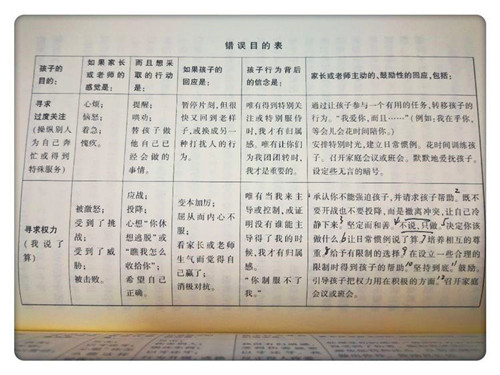 错误目的表
孩子的
目的:
如果家长
或老师的
感觉是:
而且想采
取的行动
是:
如果孩子的
回应是:
孩子行为背后
的信念是:
家长或老师主动的、鼓励性的回应,包括:
寻求
过度关注
(操纵别人
为自己奔
忙或得到
特殊服务)
心烦;
恼怒;
着急;
愧疚。
提醒;
哄劝;
替孩子做
他自己已
经会做的
事情。
暂停片刻,但很
快又回到老样
子,或换成另一
种打扰人的行
为。
唯有得到特别关
注或特别服务
时,我才有归属
感。唯有让你们
为我团团转时,
我才是重要的。
通过让孩子参与一个有用的任务,转移孩子的
行为。“我爱你,而且……”(例如:我在乎你,
等会儿会花时间陪你。)
安排特别时光,建立日常惯例。花时间训练孩
子。召开家庭会议或班会。默默地爱抚孩子。
设定些无言的暗号。
寻求权力
(我说了
算)
被激怒;
受到了挑
战;
受到了威
胁;
被击败。
应战;
投降;
心想“你休
想逃脱”或
“瞧我怎么
收拾你”;
希望自己
正确。
变本加厉;
屈从而内心不
服;
看家长或老师
生气而觉得自
己赢了;
消极对抗。
唯有当我来主
导或控制,或证
明没有谁能主
导得了我的时
候,我才有归属
感。
“你制服不了
我。”
承认你不能强迫孩子,并请求孩子帮助。2既不
要开战也不要投降,而是撤离冲突,让自己冷
静下来。3坚定而和善。4不说,只做。5决定你该
做什么。6让日常惯例说了算。7培养相互的尊
重。8给予有限制的选择。9在设立一些合理的
限制时得到孩子的帮助。10坚持到底。11鼓励。
引导孩子把权力用在积极的方面。12召开家庭
会议或班会。